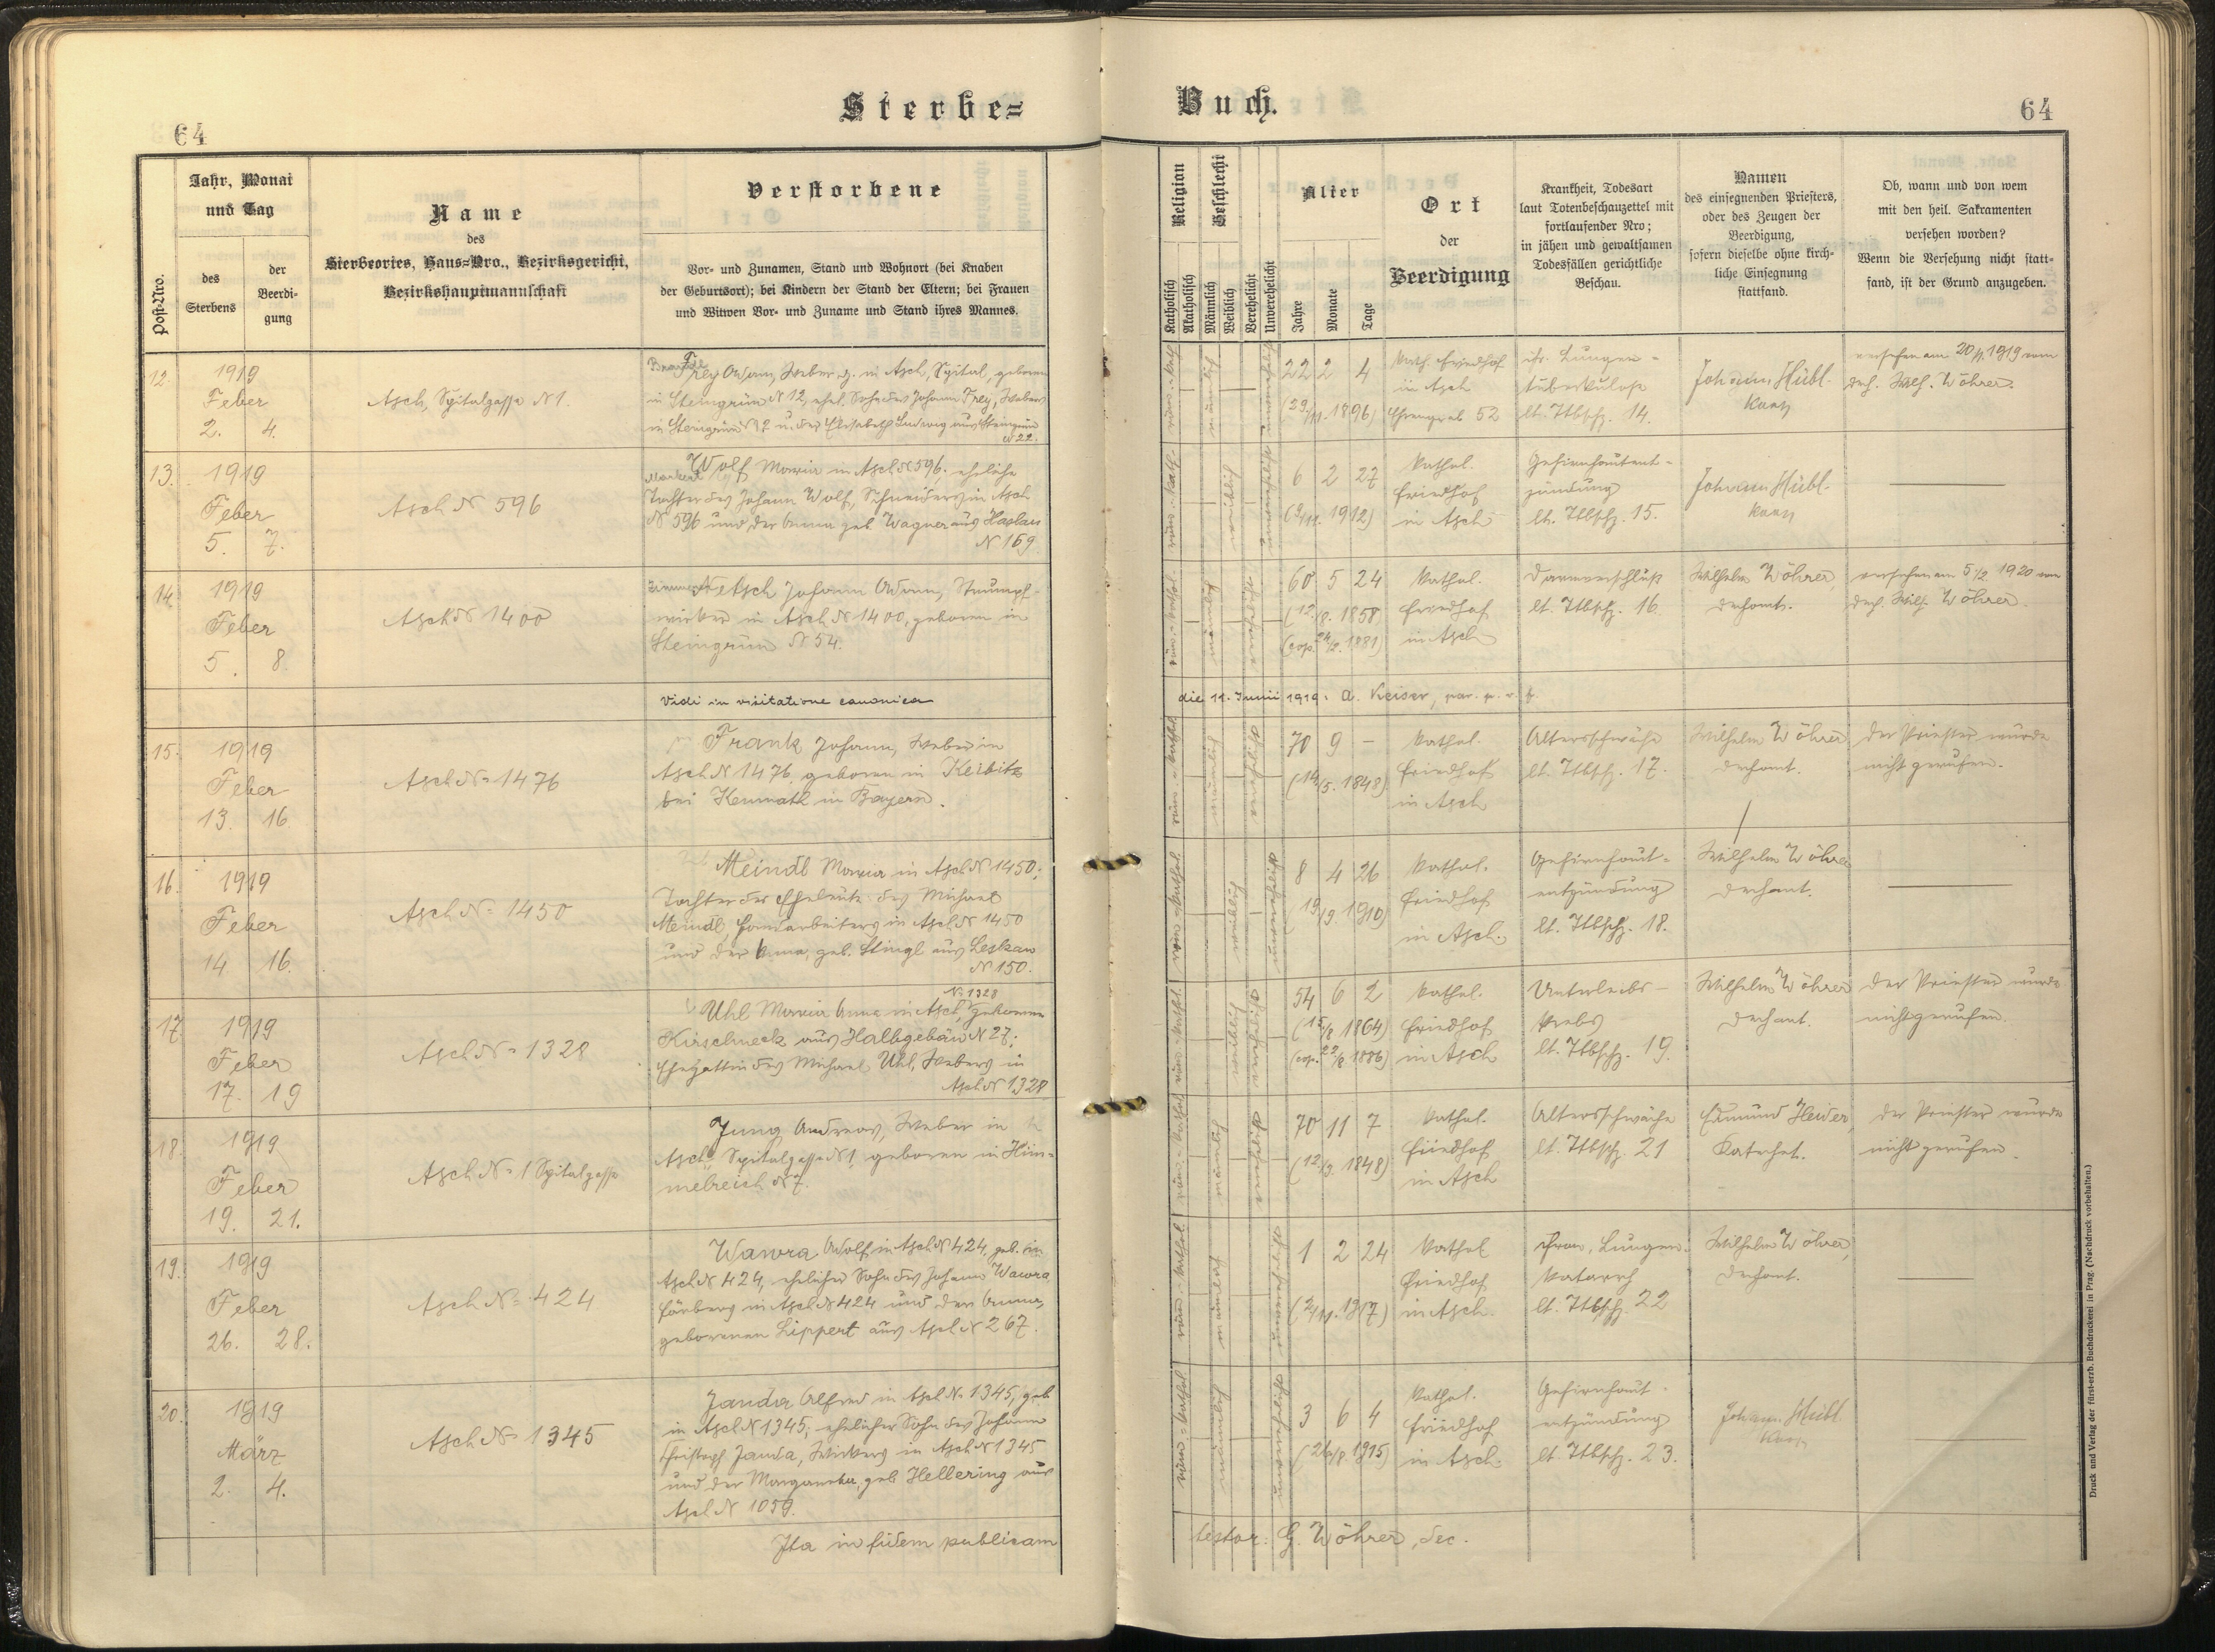 Sterbe=
Buch.
64
64
Post-Nro.
Jahr, Monat
und Tag
des
Sterbens
der
Beerdi-
gung
Name
des
Sterbeortes, Haus-Nro., Bezirksgericht,
Bezirkshauptmannschaft
Verstorbene
Vor- und Zunamen, Stand und Wohnort (bei Knaben
der Geburtsort); bei Kindern der Stand der Eltern; bei Frauen
und Witwen Vor- und Zuname und Stand ihres Mannes.
Religion
Katholisch
Akatholisch
Geschlecht
Männlich
Weiblich
Verehelicht
Unverehelicht
Alter
Jahre
Monate
Tage
Ort
der
Beerdigung
Krankheit, Todesart
laut Totenbeschauzettel mit
fortlaufender Nro;
in jähen und gewaltsamen
Todesfällen gerichtliche
Beschau.
Namen
des einsegnenden Priesters,
oder des Zeugen der
Beerdigung,
sofern dieselbe ohne kirch-
liche Einsegnung
stattfand.
Ob, wann und von wem
mit den heil. Sakramenten
versehen worden?
Wenn die Versehung nicht statt-
fand, ist der Grund anzugeben.
12.
1919
Feber
2. 4.
Asch, Spitalgasse N 1.
Frey Adam, Weber, z. in Asch, Spital, geboren
in Steingrün N 12, ehel. Sohn des Johann Frey, Webers
in Steingrün N 12 u. der Elisabeth Ludwig aus Steingrün
N 22.
röm.-kath.
männlich
unverehelicht
22 2 4
(29/11. 1896)
Kath. Friedhof
in Asch
Ehrengrab 52
chr. Lungen-
tuberkulose
lt. Ttbschz. 14.
Johann Hübl.
Kaap
versehen am 20/1. 1919 vom
Dech. Wilh. Wöhrer.
13.
1919
Feber
5. 7.
Asch N 596
Wolf Maria in Asch N 596; eheliche
Tochter des Johann Wolf, Schneiders in Asch
N 596 und der Anna geb. Wagner aus Haslau
N 169.
röm.-kath.
weiblich
unverehelicht
6 2 27
(9/11. 1912)
Kathol.
Friedhof
in Asch
Gehirnhautent-
zündung
lt. Ttbschz. 15.
Johann Hübl.
Kaap
14.
1919
Feber
5. 8.
Asch N 1400
Netsch Johann Adam, Strumpf-
wirker in Asch N 1400, geboren in
Steingrün N 54.
röm.-kathol.
männlich
verehelicht
60 5 24
(12./8. 1858)
(cop. 24/2. 1881)
Kathol.
Friedhof
in Asch
Darmverschluß
lt. Ttbschz. 16.
Wilhelm Wöhrer,
Dechant.
versehen am 5/2 1920 von
Dech. Wilh. Wöhrer.
Vidi in visitatione canonica
die 11. Junii 1919. A. Keiser,
15.
1919
Feber
13. 16
Asch N= 1476
Frank Johann, Weber in
Asch N 1476, geboren in Keibitz
bei Kemnath in Bayern.
röm.-kathol.
männlich
verehelicht
70 9 –
(14/5. 1848)
Kathol.
Friedhof
in Asch
Altersschwäche
lt. Ttbschz. 17.
Wilhelm Wöhrer
Dechant.
Der Priester wurde
nicht gerufen.
16.
1919
Feber
14 16.
Asch N= 1450
Meindl Maria in Asch N 1450;
Tochter der Eheleute: des Michael
Meindl, Handarbeiters in Asch N 1450
und der Anna, geb. Stingl aus Leskau
N 150.
röm.-kathol.
weiblich
unverehelicht
8 4 26
(19/9. 1910)
Kathol.
Friedhof
in Asch.
Gehirnhaut-
entzündung
lt. Ttbschz. 18.
Wilhelm Wöhrer
Dechant.
17.
1919
Feber
17. 19
Asch N= 1328
N. 1328
Uhl Maria Anna in Asch, geborene
Kirschneck aus Halbgebäu N 27;
Ehegattin des Michael Uhl, Webers in
Asch N 1328
röm.-kathol.
weiblich
verehelicht
54 6 2
(15/8. 1864)
(cop. 22/8 1886)
Kathol.
Friedhof
in Asch
Unterleibs-
Krebs
lt. Ttbschz. 19.
Wilhelm Wöhrer
Dechant.
Der Priester wurde
nicht gerufen.
18.
1919
Feber
19. 21.
Asch N= 1 Spitalgasse
Jung Andreas, Weber in
Asch, Spitalgasse N 1, geboren in Him-
melreich N 7.
röm.-kathol.
männlich
verehelicht
70 11 7
(12./3. 1848)
Kathol.
Friedhof
in Asch
Altersschwäche
lt. Ttbschz. 21
Edmund Heider,
Katechet.
Der Priester wurde
nicht gerufen.
19.
1919
Feber
26. 28.
Asch N= 424
Wawra Adolf in Asch N 424, geb. in
Asch N 424, ehelicher Sohn des Johann Wawra
Färbers in Asch N 424 und der Anna,
geborenen Lippert aus Asch N 267.
röm.-kathol.
männlich
unverehelicht
1 2 24
(2/11. 1917)
Kathol
Friedhof
in Asch.
chron. Lungen-
Katarrh
lt. Ttbschz. 22
Wilhelm Wöhrer,
Dechant.
20.
1919
März
2. 4.
Asch N= 1345
Janda Alfred in Asch N. 1345, geb.
in Asch N 1345; ehelicher Sohn des Johann
Christoph Janda, Wirkers in Asch N 1345
und der Margareta, geb. Hellering aus
Asch N 1059.
röm.-kathol
männlich
unverehelicht
3 6 4
(26/8. 1915)
Kathol.
Friedhof
in Asch.
Gehirnhaut-
entzündung
lt. Ttbschz. 23.
Johann Hübl.
Kaap
Ita in fidem publicam
testor: G. Wöhrer, dec.
Druck und Verlag der fürst-erzb. Buchdruckerei in Prag. (Nachdruck vorbehalten.)